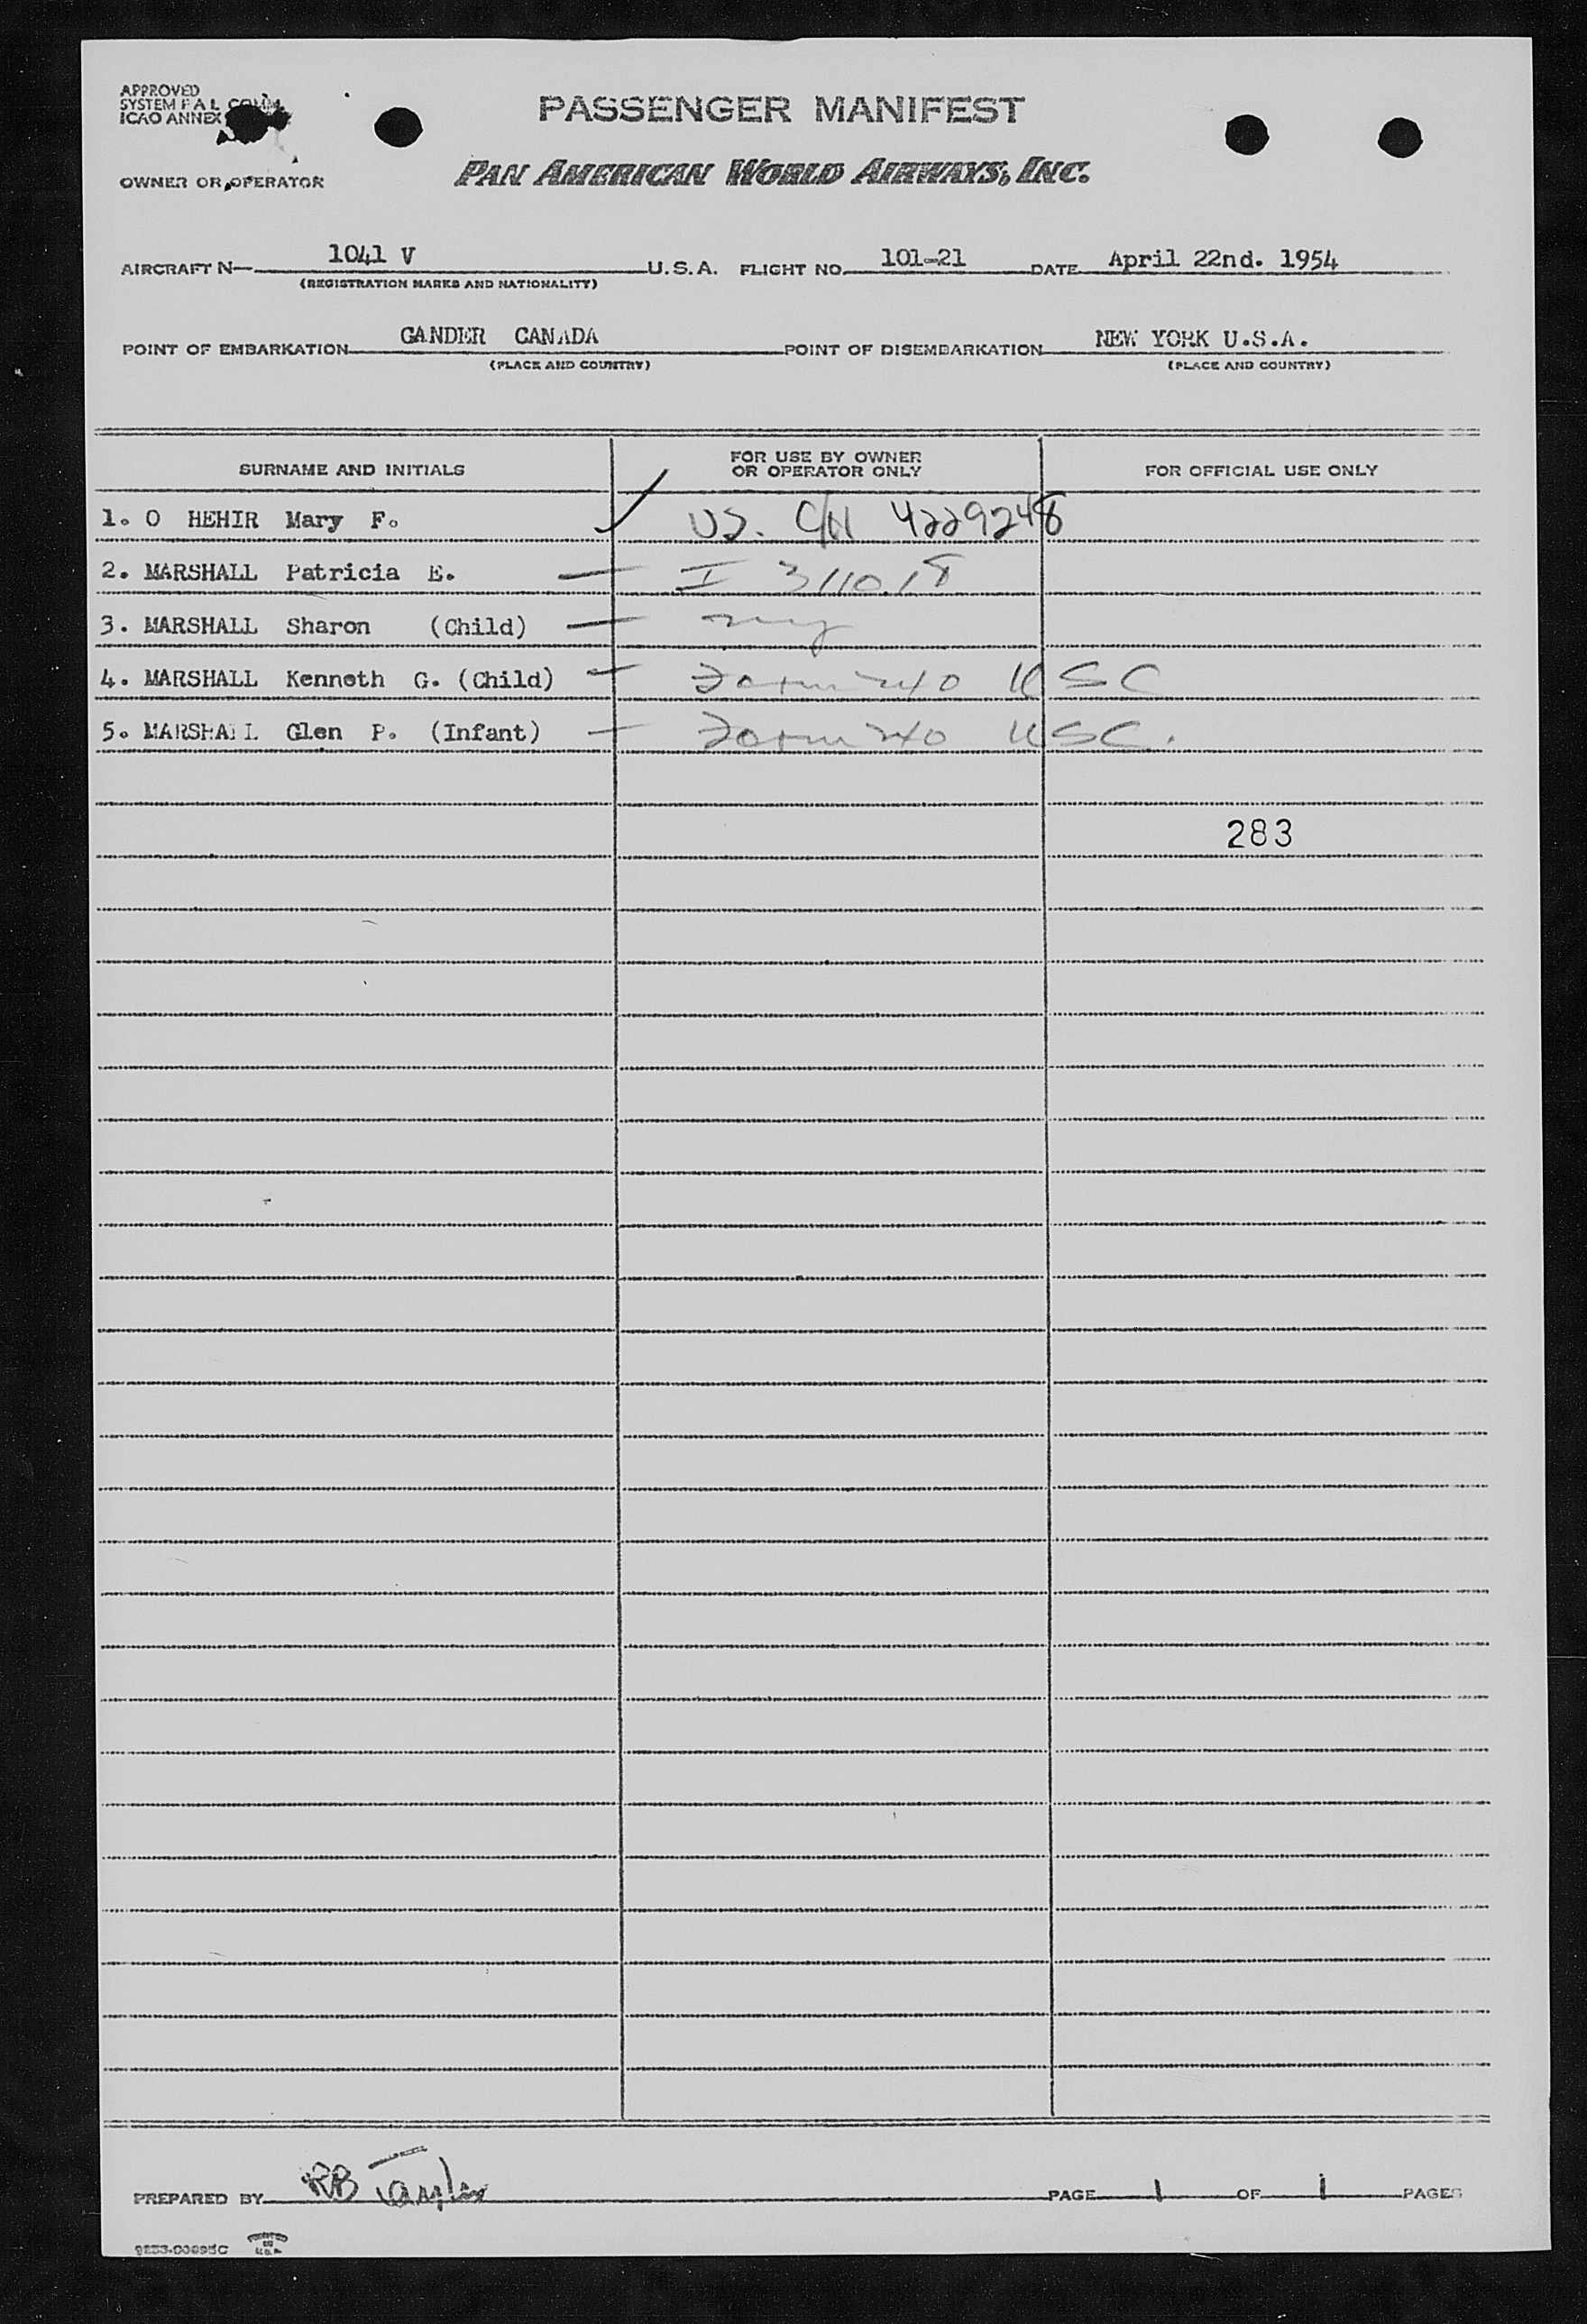 APPROVED
SYSTEM F A L COMM
ICAO ANNEX
PASSENGER MANIFEST
OWNER OR OPERATOR
PAN AMERICAN WORLD AIRWAYS, INC.
AIRCRAFT N— 1041 V U.S.A. FLIGHT NO. 101-21 DATE April 22nd. 1954
(REGISTRATION MARKS AND NATIONALITY)
POINT OF EMBARKATION GANDER CANADA POINT OF DISEMBARKATION NEW YORK U.S.A.
(PLACE AND COUNTRY) (PLACE AND COUNTRY)
SURNAME AND INITIALS FOR USE BY OWNER OR OPERATOR ONLY FOR OFFICIAL USE ONLY
1. O HEHIR Mary F. US. C/N 4229248
2. MARSHALL Patricia E. I 311018
3. MARSHALL Sharon (Child)
4. MARSHALL Kenneth G. (Child) Form 240 USC
5. MARSHALL Glen P. (Infant) Form 240 USC.
283
PREPARED BY RB Taylor PAGE 1 OF 1 PAGES